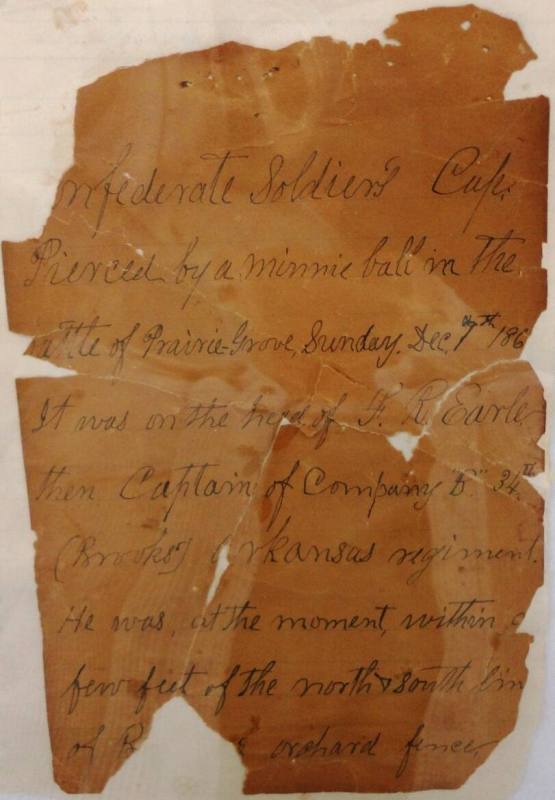 nfederate Soldier's Cap.
Pierced by a minnie ball in the
attle of Prairie-Grove, Sunday. Dec. 7th 186
It was on the head of F. R. Earle
then Captain of Company "B" 34th
(Brooks') Arkansas regiment.
He was, at the moment, within a
few feet of the north & south lin
of orchard fence,